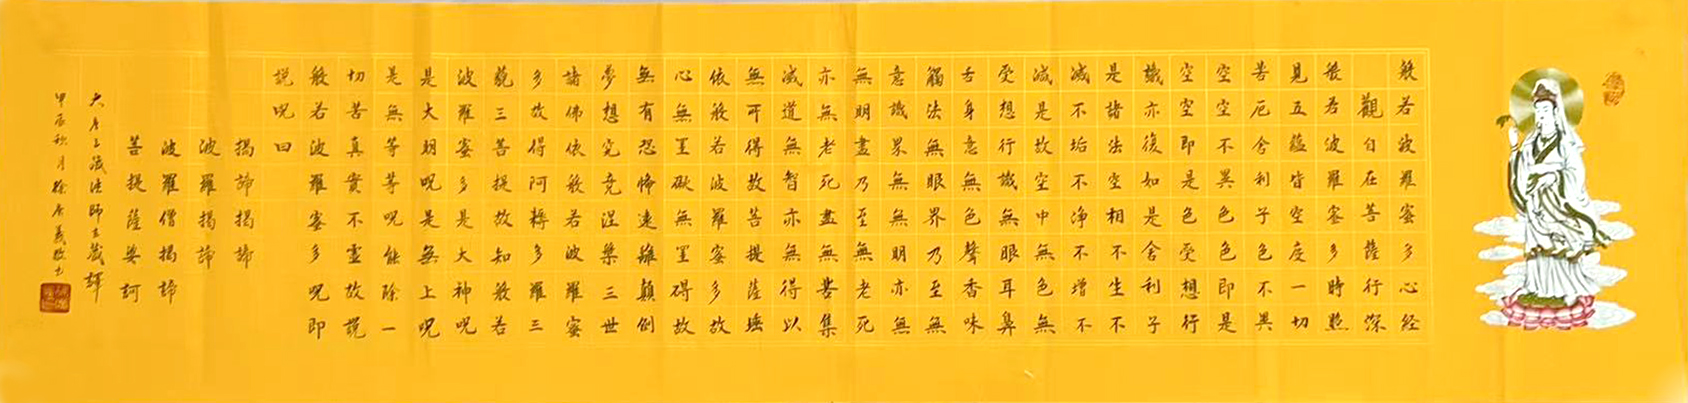 般若波羅蜜多心経
觀自在菩薩行深
般若波羅蜜多時照
見五蘊皆空度一切
苦厄舍利子色不異
空空不異色色即是
空空即是色受想行
識亦復如是舍利子
是諸法空相不生不
滅不垢不净不增不
減是故空中無色無
受想行識無眼耳鼻
舌身意無色聲香味
觸法無眼界乃至無
意識界無無明亦無
無明盡乃至無老死
亦無老死盡無苦集
滅道無智亦無得以
無所得故菩提薩埵
依般若波羅蜜多故
心無罣礙無罣礙故
無有恐怖遠離顛倒
夢想究竟涅槃三世
諸佛依般若波羅蜜
多故得阿耨多羅三
藐三菩提故知般若
波羅蜜多是大神呪
是大明呪是無上呪
是無等等呪能除一
切苦真實不虛故說
般若波羅蜜多呪即
說呪曰
揭諦揭諦
波羅揭諦
波羅僧揭諦
菩提薩婆訶
大唐三藏法師玄奘譯
甲辰秋月徐唐義敬書